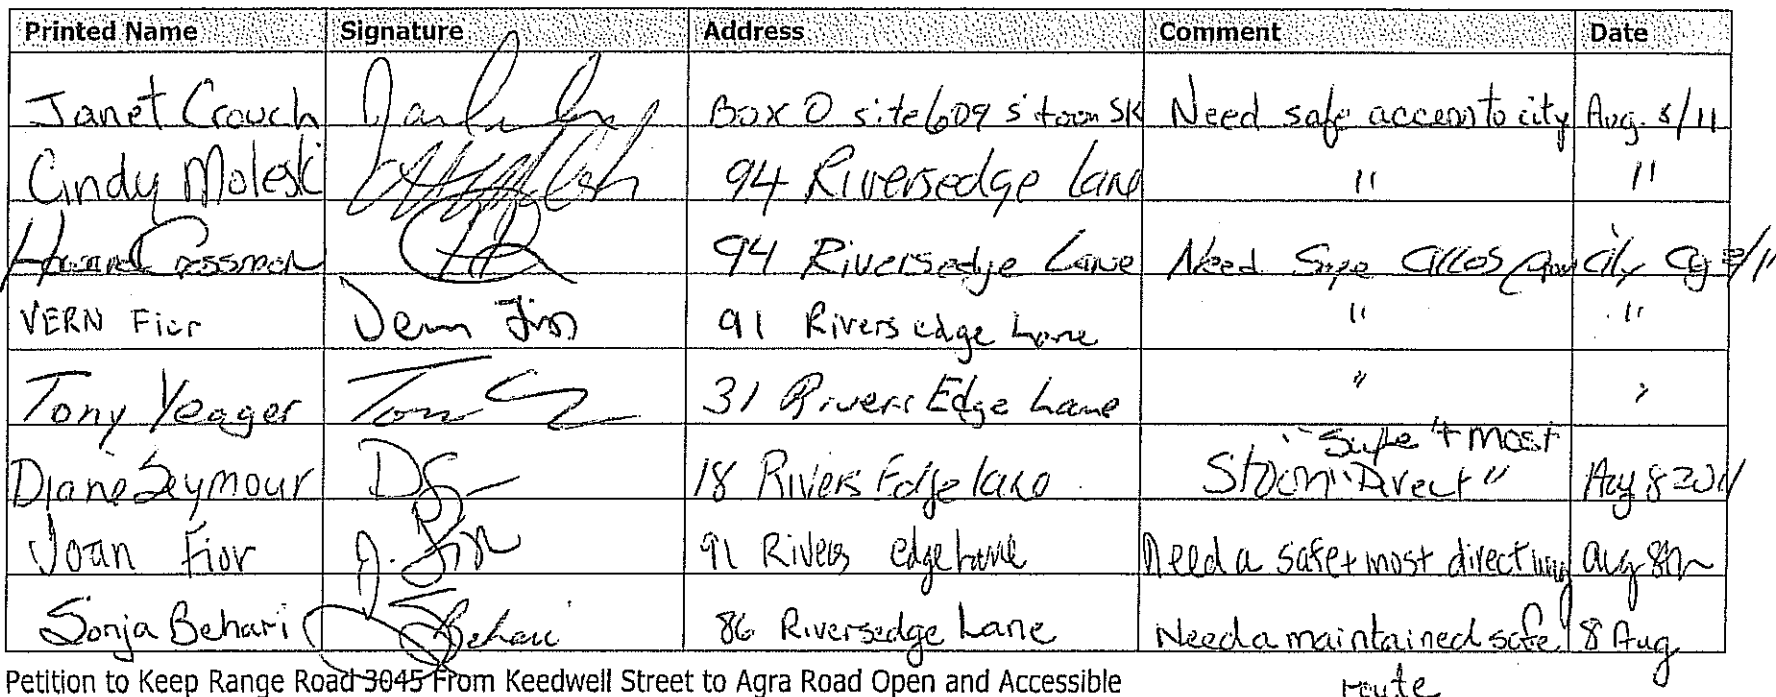 Printed Name Signature Address Comment Date
Janet Crouch Box 0 site 609 s'toon SK Need safe access to city Aug. 8/11
Cindy Moleski 94 Riversedge Lane " "
Cressman 94 Riversedge Lane Need city 8/11
VERN Fior Vern Fior 91 Rivers edge Lane " "
Tony Yeager 31 Rivers Edge Lane " "
"Safe + most
Diane Seymour DS 18 Rivers Edge lane Stoon Direct" Aug 8 2011
Joan Fior J. Fior 91 Rivers edge Lane Need a safe + most direct way Aug 8th
Sonja Behari Behari 86 Riversedge Lane Need a maintained safe 8 Aug
route
Petition to Keep Range Road 3045 From Keedwell Street to Agra Road Open and Accessible